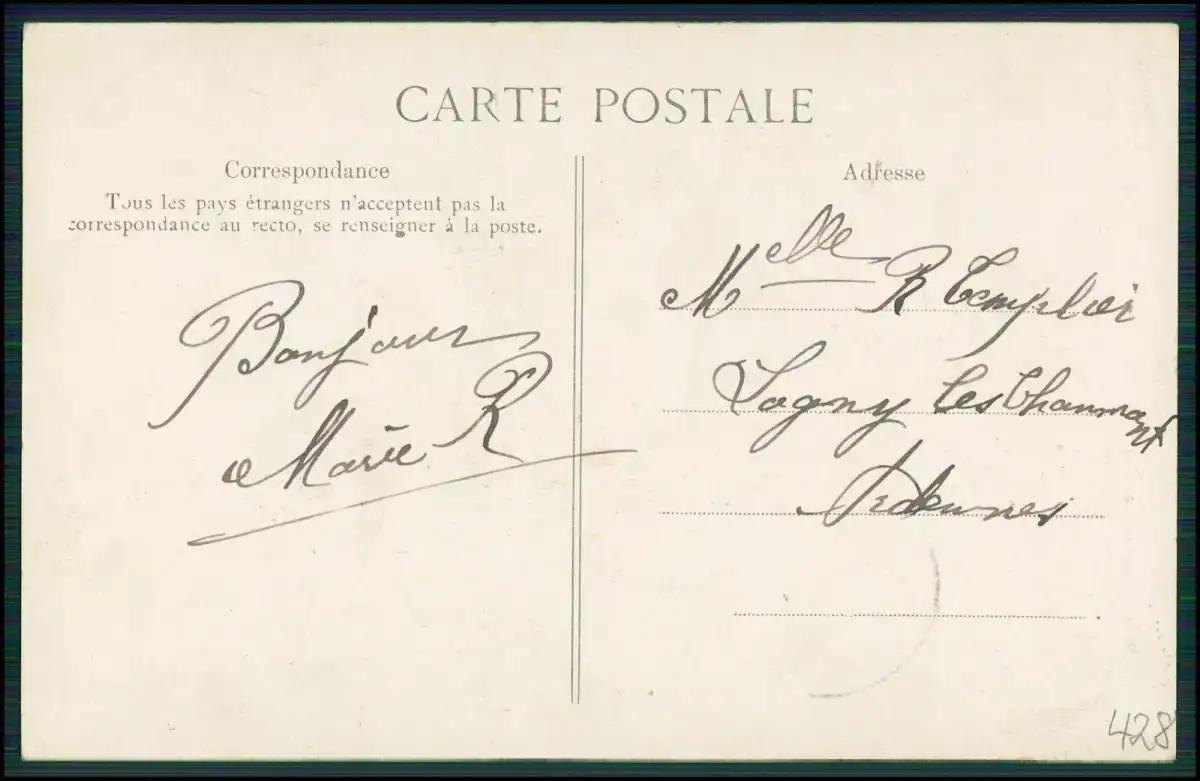 CARTE POSTALE
Correspondance
Tous les pays étrangers n'acceptent pas la
correspondance au recto, se renseigner à la poste.
Bonjour
Marie R
Adresse
Melle R Templier
Logny les Chaumont
Ardennes
428